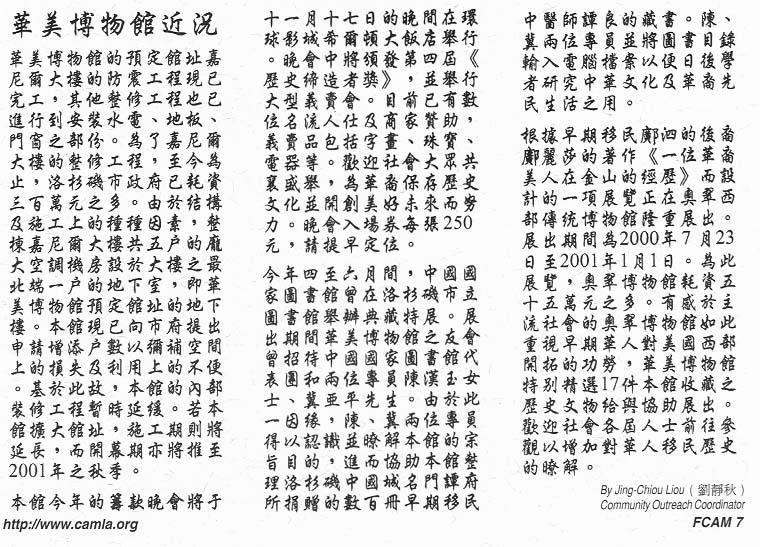 華美博物館近況
華美博物館的預定館址嘉
尼爾大樓的防震工程現已
完工，其他整修工程也已
進行到安裝水電、地板、
門窗之部份。為了嘉尼爾
大樓的整修工程，至今為
止，洛杉磯市政府已耗資
三百萬元之多。由於結構
及施工上的種種因素，整
棟嘉尼爾大樓共五戶的龐
大空調機房設於大樓之最
此端一戶的地下室，即華
美博物館預定館址的地下
樓。本館現已向市府提出
申請增添戶數以彌補空間
上的損失及利用上的不便
。基於此故，本館的內部
裝修工程暫時延緩。若本
館擴大館址，施工期則將
延長，而開幕期亦將推至
2001年之秋季。
本館今年的籌款晚會將于
十一月十七日的晚間在環
球影城希爾頓大飯店舉行
。晚會中將頒發第四屆《
歷史締造者獎》，並舉行
大型義賣會。目前已有數
位名流人仕及商家贊助，
義賣品包括字畫、珠寶、
電器等。歡迎社會大眾共
襄盛舉，為華裔保存歷史
文化並開創美好未來而努
力。晚會入場券每張250
元，請提早定位。
今年四至六月間，中國國
家圖書館曾在洛杉磯市立
圖書館舉辦典藏特展。展
出期間華美博物館之友會
曾招待中國國家圖書館代
表團和兩位專員陳漢玉女
士、冀亞平先生。由於此
一因緣，陳、冀兩位專員
得以認識、瞭解本館的宗
旨目的，並進協助本館整
理洛杉磯中國城名門譚府
所捐贈的數百冊早期移民
中醫師譚良的藏書。陳、
冀兩位專員並將圖書目錄
輸入電腦檔案以便日後學
者研究中華文化及華裔先
民生活之用。
根據早期移民鄺泗的後裔
鄺麗莎的著作《一位華裔
美人在金山的經歷》而設
計的一項展覽正在奧翠西
部傳統博物館隆重展出。
展出期間為2000年7月23
日至2001年1月1日。為此
展覽，奧翠博物館耗資五
十五萬元之多。有感於主
流社會的奧翠博物館如此
重視早期華人對美國西部
開拓的功勞，華美博物館
特別精選17件本館收藏之
歷史文物給與協助展出。
歡迎社會各屆人士前往參
觀以增加對華人移民歷史
的瞭解。
By Jing-Chiou Liou（劉靜秋）
Community Outreach Coordinator
http://www.camla.org
FCAM 7